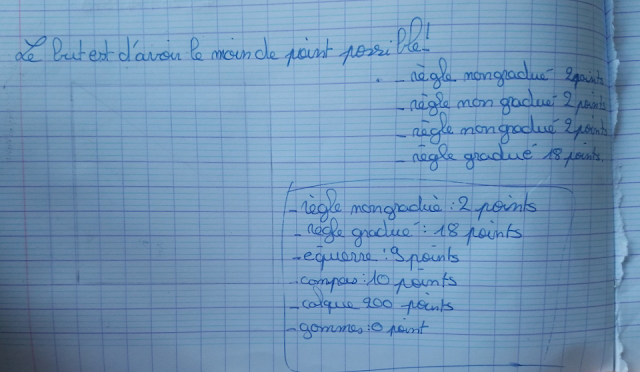 Le but est d'avoir le moin de point possible!
- règle nongradué 2 points
- règle non gradué 2 points
- règle nongradué 2 points
- règle gradué 18 points.
- règle nongradué : 2 points
- règle gradué : 18 points
- equerre : 9 points
- compas : 10 points
- calque 200 points
- gommes : 0 point